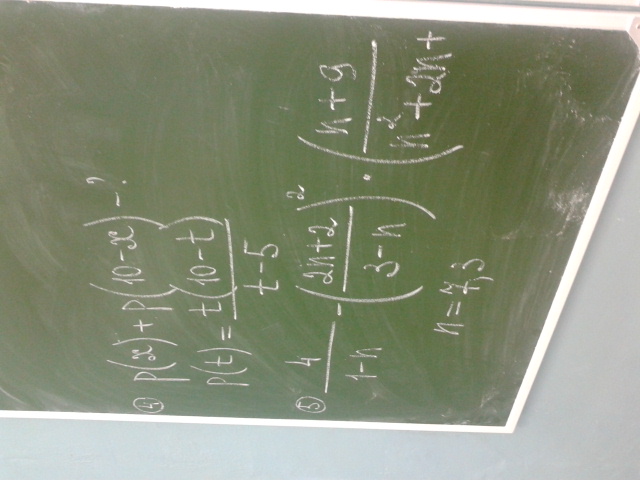 ④ p(x) + p(10-x) - ?
p(t) = t(10-t) / t-5
⑤ 4 / 1-n - (2n+2 / 3-n)² · (n+9 / n²+2n+
n = 7,3